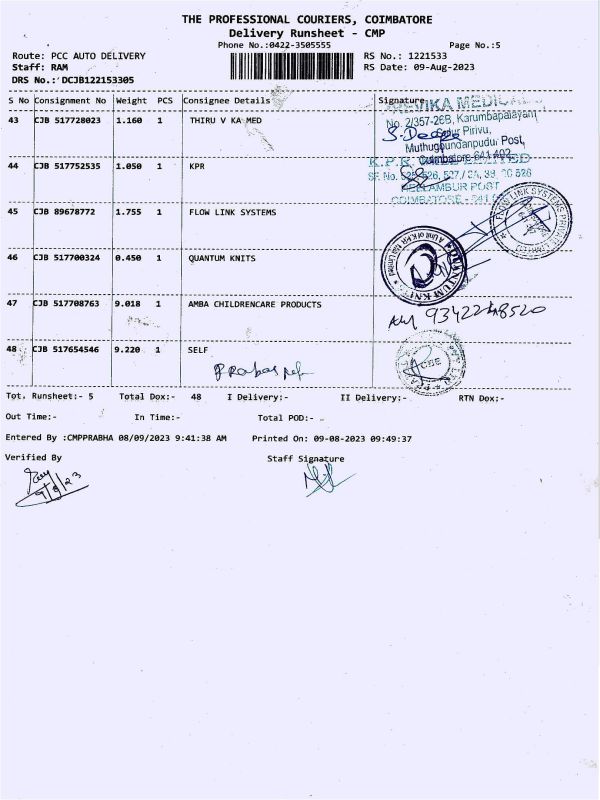 THE PROFESSIONAL COURIERS, COIMBATORE
Delivery Runsheet - CMP
Phone No.:0422-3505555
Page No.:5
Route: PCC AUTO DELIVERY
RS No.: 1221533
Staff: RAM
RS Date: 09-Aug-2023
DRS No.: DCJB122153305
S No Consignment No Weight PCS Consignee Details Signature
43 CJB 517728023 1.160 1 THIRU V KA MED
MEDICALS
No. 2/357-26B, Karumbapalayam
Pirivu,
Muthugoundanpudur Post,
Coimbatore 641 402
44 CJB 517752535 1.050 1 KPR
K.P.R. LIMITED
SF. No.
POST
COIMBATORE - 641
45 CJB 89678772 1.755 1 FLOW LINK SYSTEMS
FLOW LINK SYSTEMS PRIVATE
46 CJB 517700324 0.450 1 QUANTUM KNITS
QUANTUM KNITS
47 CJB 517708763 9.018 1 AMBA CHILDRENCARE PRODUCTS
48 CJB 517654546 9.220 1 SELF
CBE
Tot. Runsheet:- 5 Total Dox:- 48 I Delivery:- II Delivery:- RTN Dox:-
Out Time:- In Time:- Total POD:-
Entered By :CMPPRABHA 08/09/2023 9:41:38 AM Printed On: 09-08-2023 09:49:37
Verified By Staff Signature
9/8/23